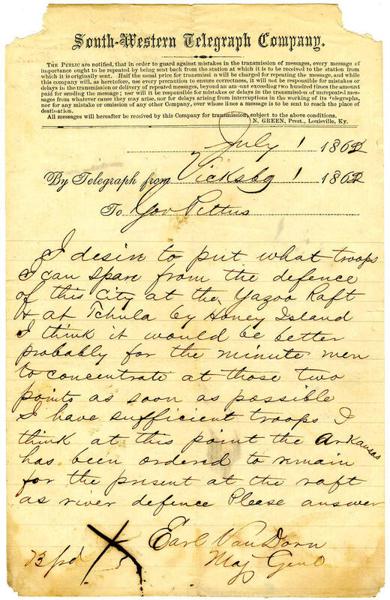 South-Western Telegraph Company.
THE PUBLIC are notified, that in order to guard against mistakes in the transmission of messages, every message of
importance ought to be repeated by being sent back from the station at which it is to be received to the station from
which it is originally sent. Half the usual price for transmission will be charged for repeating the message, and while
this company will, as heretofore, use every precaution to ensure correctness, it will not be responsible for mistakes or
delays in the transmission or delivery of repeated messages, beyond an amount exceeding two hundred times the amount
paid for sending the message; nor will it be responsible for mistakes or delays in the transmission of unrepeated mes-
sages from whatever cause they may arise, nor for delays arising from interruptions in the working of its telegraphs,
nor for any mistake or omission of any other Company, over whose lines a message is to be sent to reach the place of
destination.
All messages will hereafter be received by this Company for transmission, subject to the above conditions.
N. GREEN, Prest., Louisville, Ky.
July 1 1862
By Telegraph from Vicksbg 1 1862
To Gov Pettus
I desire to put what troops
I can spare from the defence
of this City at the Yazoo Raft
& at Tchula by Honey Island
I think it would be better
probably for the minute men
to concentrate at those two
points as soon as possible
I have sufficient troops I
think at this point the Arkansas
has been ordered to remain
for the present at the raft
as river defence Please answer
Earl Van Dorn
Maj Genl
73 pd